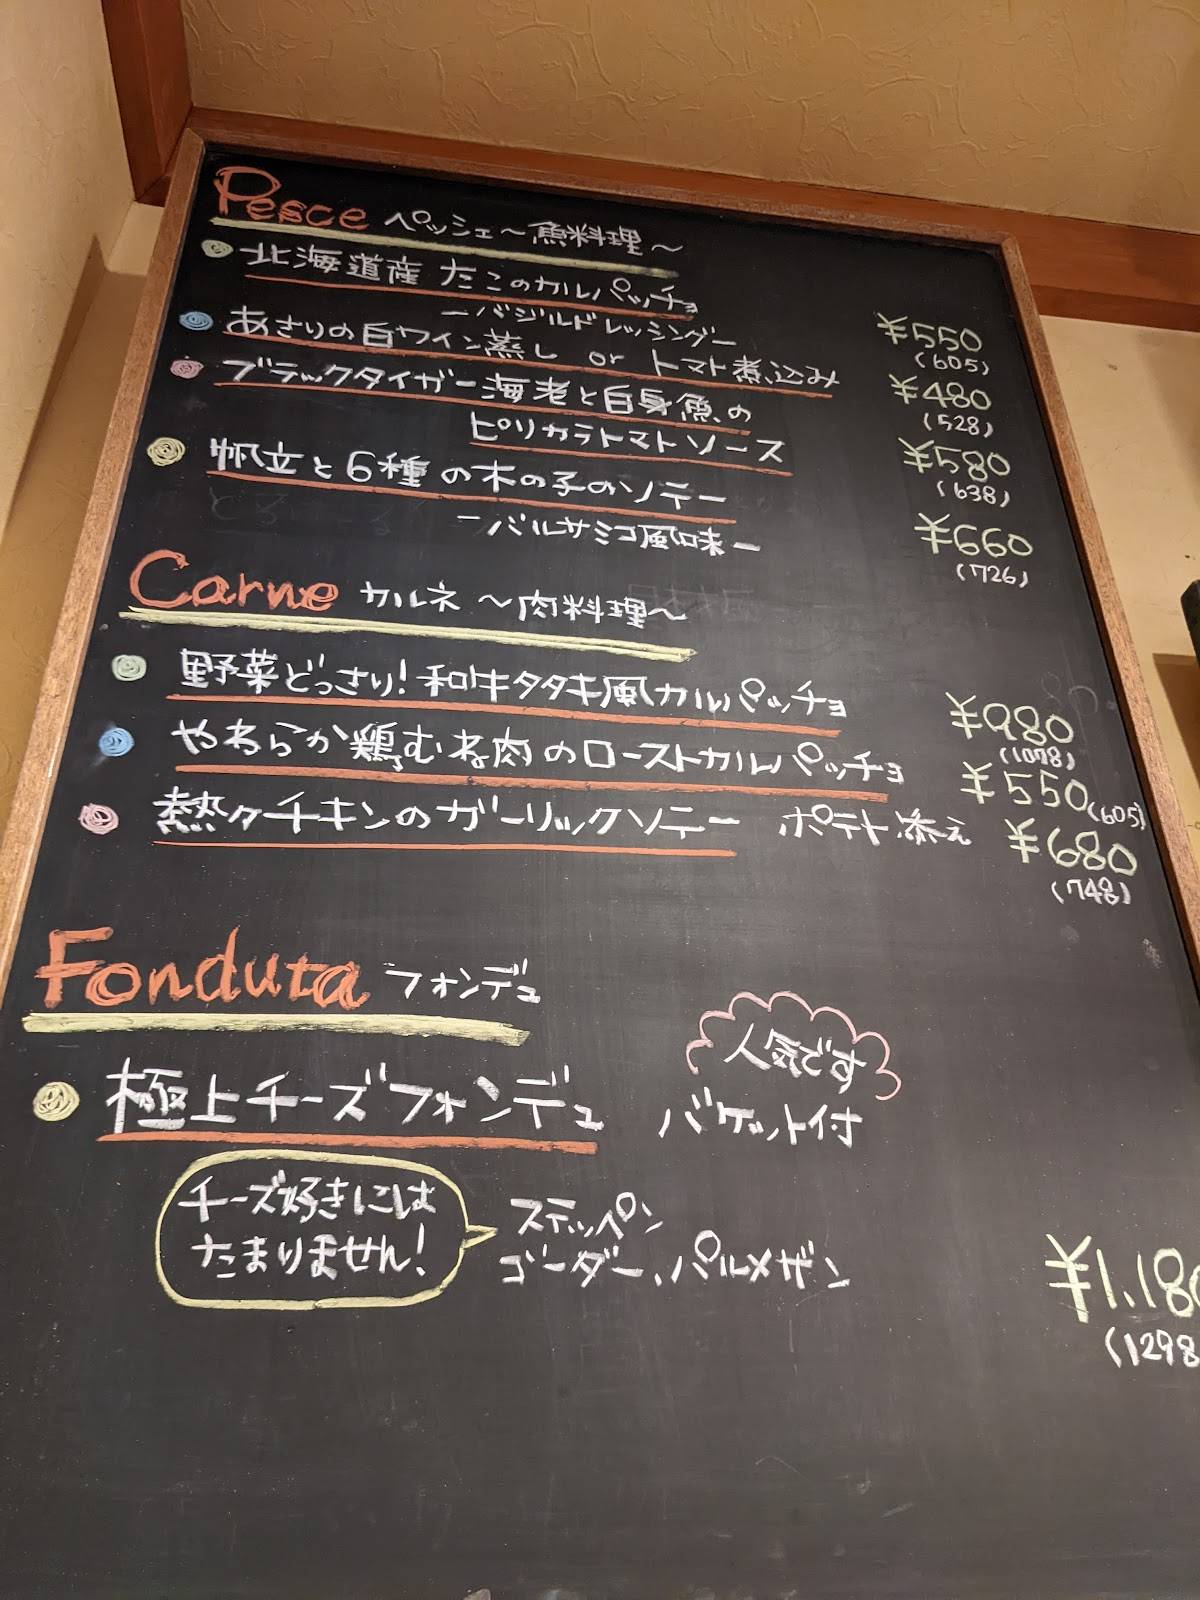 Pesce ペッシェ～魚料理～
北海道産 たこのカルパッチョ
ーバジルドレッシングー ¥550
(605)
あさりの白ワイン蒸し or トマト煮込み ¥480
(528)
ブラックタイガー海老と白身魚の
ピリカラトマトソース ¥580
(638)
帆立と6種の木の子のソテー
ーバルサミコ風味ー ¥660
(726)
Carne カルネ ～肉料理～
野菜どっさり!和牛タタキ風カルパッチョ ¥980
(1078)
やわらか鶏むね肉のローストカルパッチョ ¥550(605)
熱々チキンのガーリックソテー ポテト添え ¥680
(748)
Fonduta フォンデュ
人気です
極上チーズフォンデュ バケット付
チーズ好きには
たまりません!
ステッペン
ゴーダー、パルメザン
¥1,180
(1298